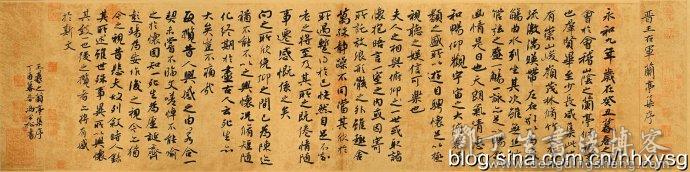 晉王右軍蘭亭集序
永和九年歲在癸丑暮春之
會于會稽山陰之蘭亭
也群賢畢至少長咸集此
有崇山峻領茂林脩竹
流激湍暎帶左右引
觴曲水列坐其次雖無絲
管弦之盛一觴一詠亦足以
幽情是日也天朗氣清惠風
和暢仰觀宇宙之大俯察品
類之盛所以遊目騁懷足以極
視聽之娛信可樂也
夫人之相與俯仰一世或取諸
懷抱晤言一室之內或因寄
所託放浪形骸之外雖趣舍
萬殊靜躁不同當其欣於
所遇暫得於己快然自足不知
老之將至及其所之既倦情隨
事遷感慨係之矣
向之所欣俛仰之間已為陳迹
猶不能不以之興懷況脩短隨
化終期於盡古人云死生亦
大矣豈不痛哉
每覽昔人興感之由若合一
契未嘗不臨文嗟悼不能喻
之於懷固知一死生為虛誕齊
彭殤為妄作後之視今亦猶
今之視昔悲夫故列敘時人錄
其所述雖世殊事異所以興懷
其致一也後之覽者亦將有感
於斯文
王羲之蘭亭集序
blog.sina.com.cn/nhxysg
blog.sina.com.cn/nhxysg